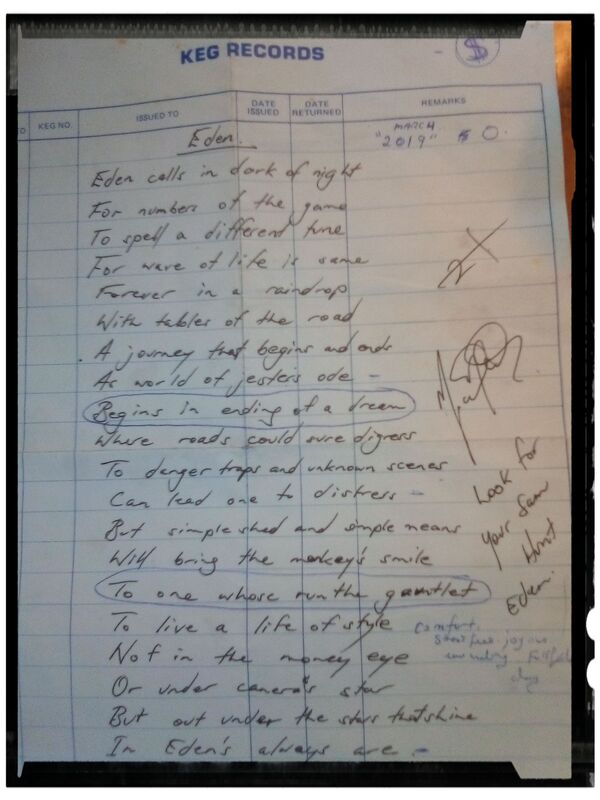 KEG RECORDS
$
KEG NO. ISSUED TO DATE ISSUED DATE RETURNED REMARKS
Eden.
MARCH
"2019"
Eden calls in dark of night
For numbers of the game
To spell a different tune
For wave of life is same
Forever in a raindrop
With tables of the road
A journey that begins and ends
As world of jester's ode -
Begins in ending of a dream
Where roads could sure digress
To danger traps and unknown scenes
Can lead one to distress -
But simple shed and simple means
Will bring the monkey's smile
To one whose run the gauntlet
To live a life of style
Not in the money eye
Or under camera's star
But out under the stars that shine
In Eden's always are -
Look for
your own
Hint
Eden.
comfort,